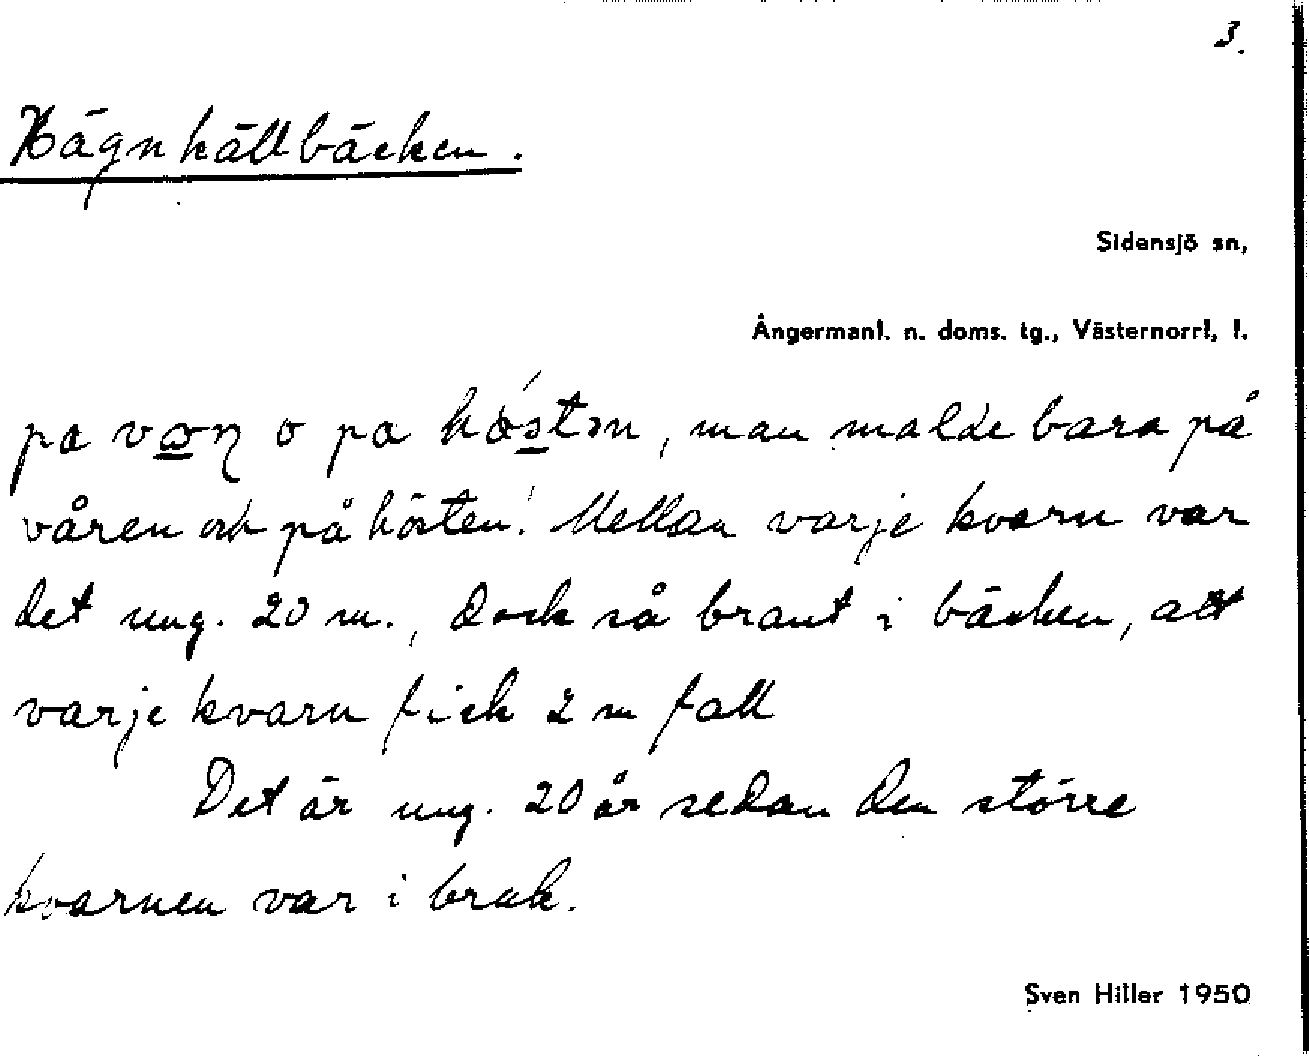 3.
Hägnkällbäcken.
Sidensjö sn,
Ångermanl. n. doms. tg., Västernorrl. l.
pa o pa, man malde bara på
våren och på hösten! Mellan varje kvarn var
det ung. 20 m., dock så brant i bäcken, att
varje kvarn fick 2 m fall
Det är ung. 20 år sedan den större
kvarnen var i bruk.
Sven Hiller 1950